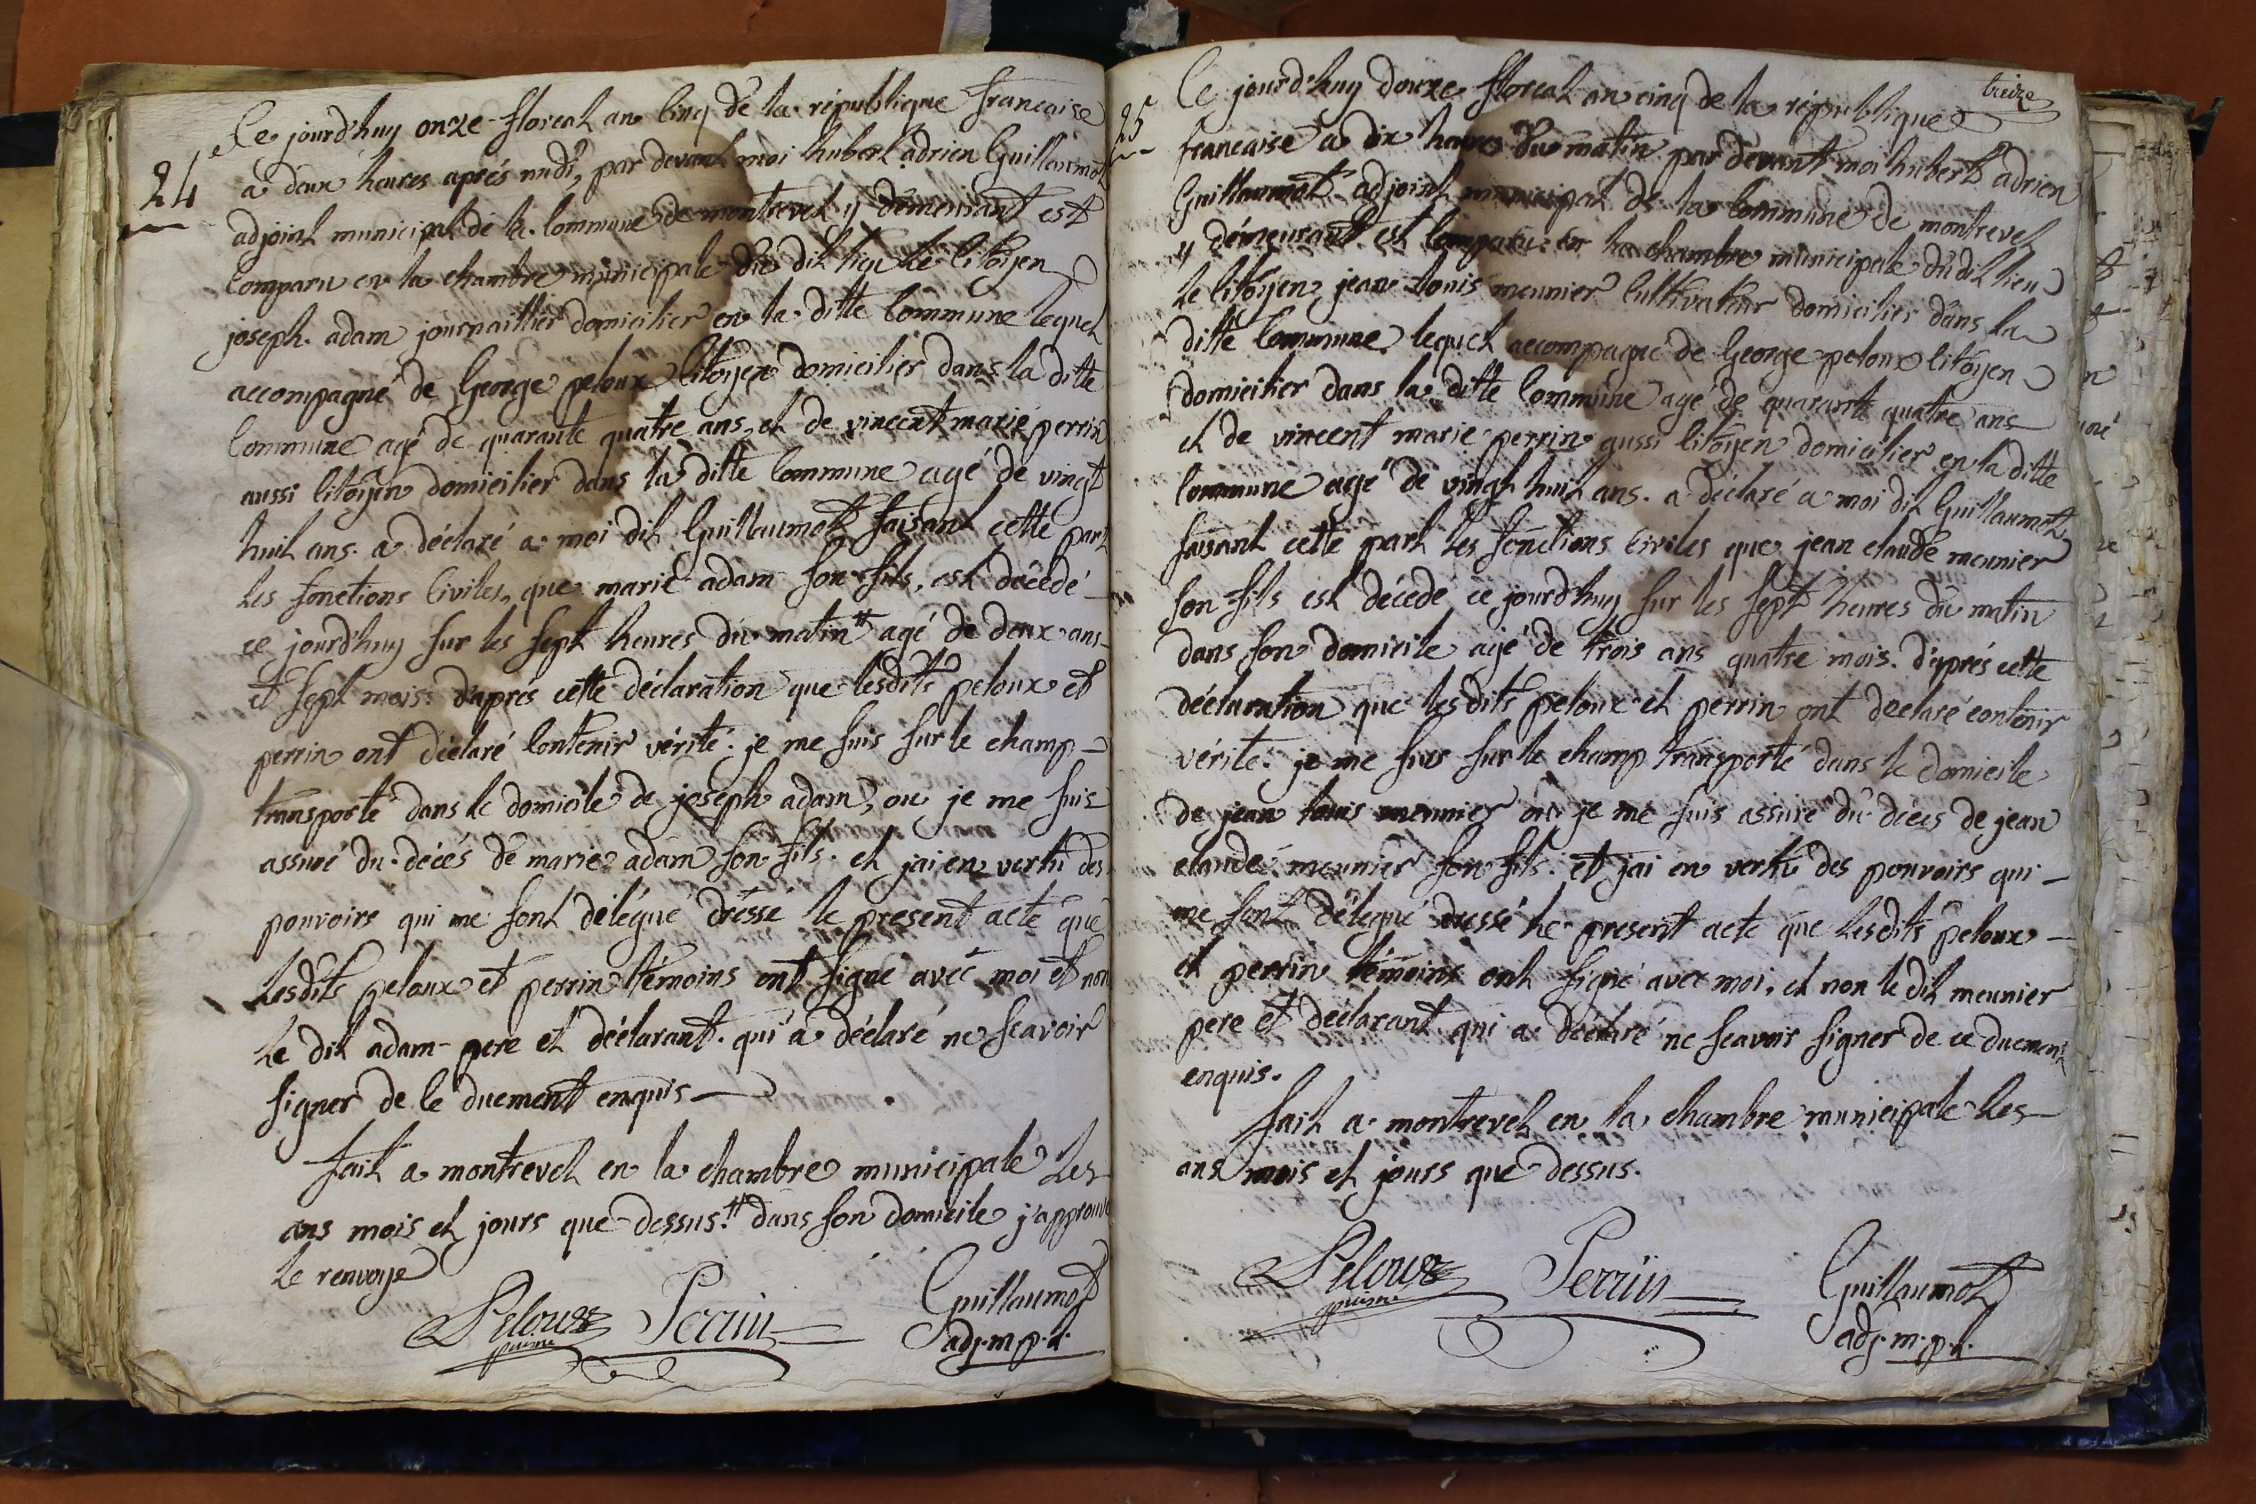 24
Ce jourd'huy onze floreal an Cinq de la république francaise
a deux heures aprés midi, par devant moi hubert adrien Guillaumot
adjoint municipal de la Commune de montrevel y demeurant est
Comparu en la chambre municipale du dit lieu le Citoÿen
joseph adam journaillier domicilier en la ditte Commune lequel
accompagné de George peloux Citoÿen domicilier dans la ditte
Commune agé de quarante quatre ans, et de vincent marie perrin
aussi Citoÿen domicilier dans la ditte Commune agé de vingt
huit ans. a déclaré a moi dit Guillaumot faisant cette part
les fonctions Civiles, que marie adam son fils, est décedé
ce jourd'huy sur les sept heures du matin # agé de deux ans
et sept mois. d'aprés cette déclaration que lesdits peloux et
perrin ont déclaré Contenir vérité. je me suis sur le champ
transporté dans le domicile de joseph adam, ou je me suis
assuré du décés de marie adam son fils. et jai en vertu des
pouvoirs qui me sont délégué dréssé le present acte que
lesdits peloux et perrin témoins ont signé avec moi et non
le dit adam pere et déclarant. qui a déclaré ne scavoir
signer de Ce duement enquis
fait a montrevel en la chambre municipale les
ans mois et jours que dessus. # dans son domicile j'approuve
le renvoye
Peloux Perrin Guillaumot
puiné adj. m. p. l.
treize
25
Ce jourd'huy douze floreal an cinq de la république
francaise a dix heures du matin par devant moi hubert adrien
Guillaumot adjoint municipal de la Commune de montrevel
y démeurant est Comparu en la chambre municipale dudit lieu
le Citoÿen jean louis meunier Cultivateur domicilier dans la
ditte Commune, lequel accompagné de George peloux Citoÿen
domicilier dans la ditte Commune agé de quarante quatre ans
et de vincent marie perrin aussi Citoÿen domicilier en la ditte
Commune agé de vingt huit ans. a déclaré a moi dit Guillaumot
faisant cette part les fonctions Civiles que jean claude meunier
son fils est décedé ce jourd'huy sur les sept heures du matin
dans son domicile agé de trois ans quatre mois. d'aprés cette
déclaration que lesdits peloux et perrin ont declaré contenir
vérité. je me suis sur le champ transporté dans le domicile
de jean louis meunier ou je me suis assuré du décés de jean
claude meunier son fils. et jai en vertu des pouvoirs qui
me sont délégué dressé le present acte que lesdits peloux
et perrin témoins ont signé avec moi, et non le dit meunier
pere et déclarant qui a déclaré ne scavoir signer de ce duement
enquis.
fait a montrevel en la chambre municipale les
ans mois et jours que dessus.
Peloux Perrin Guillaumot
puiné adj. m. p. l.